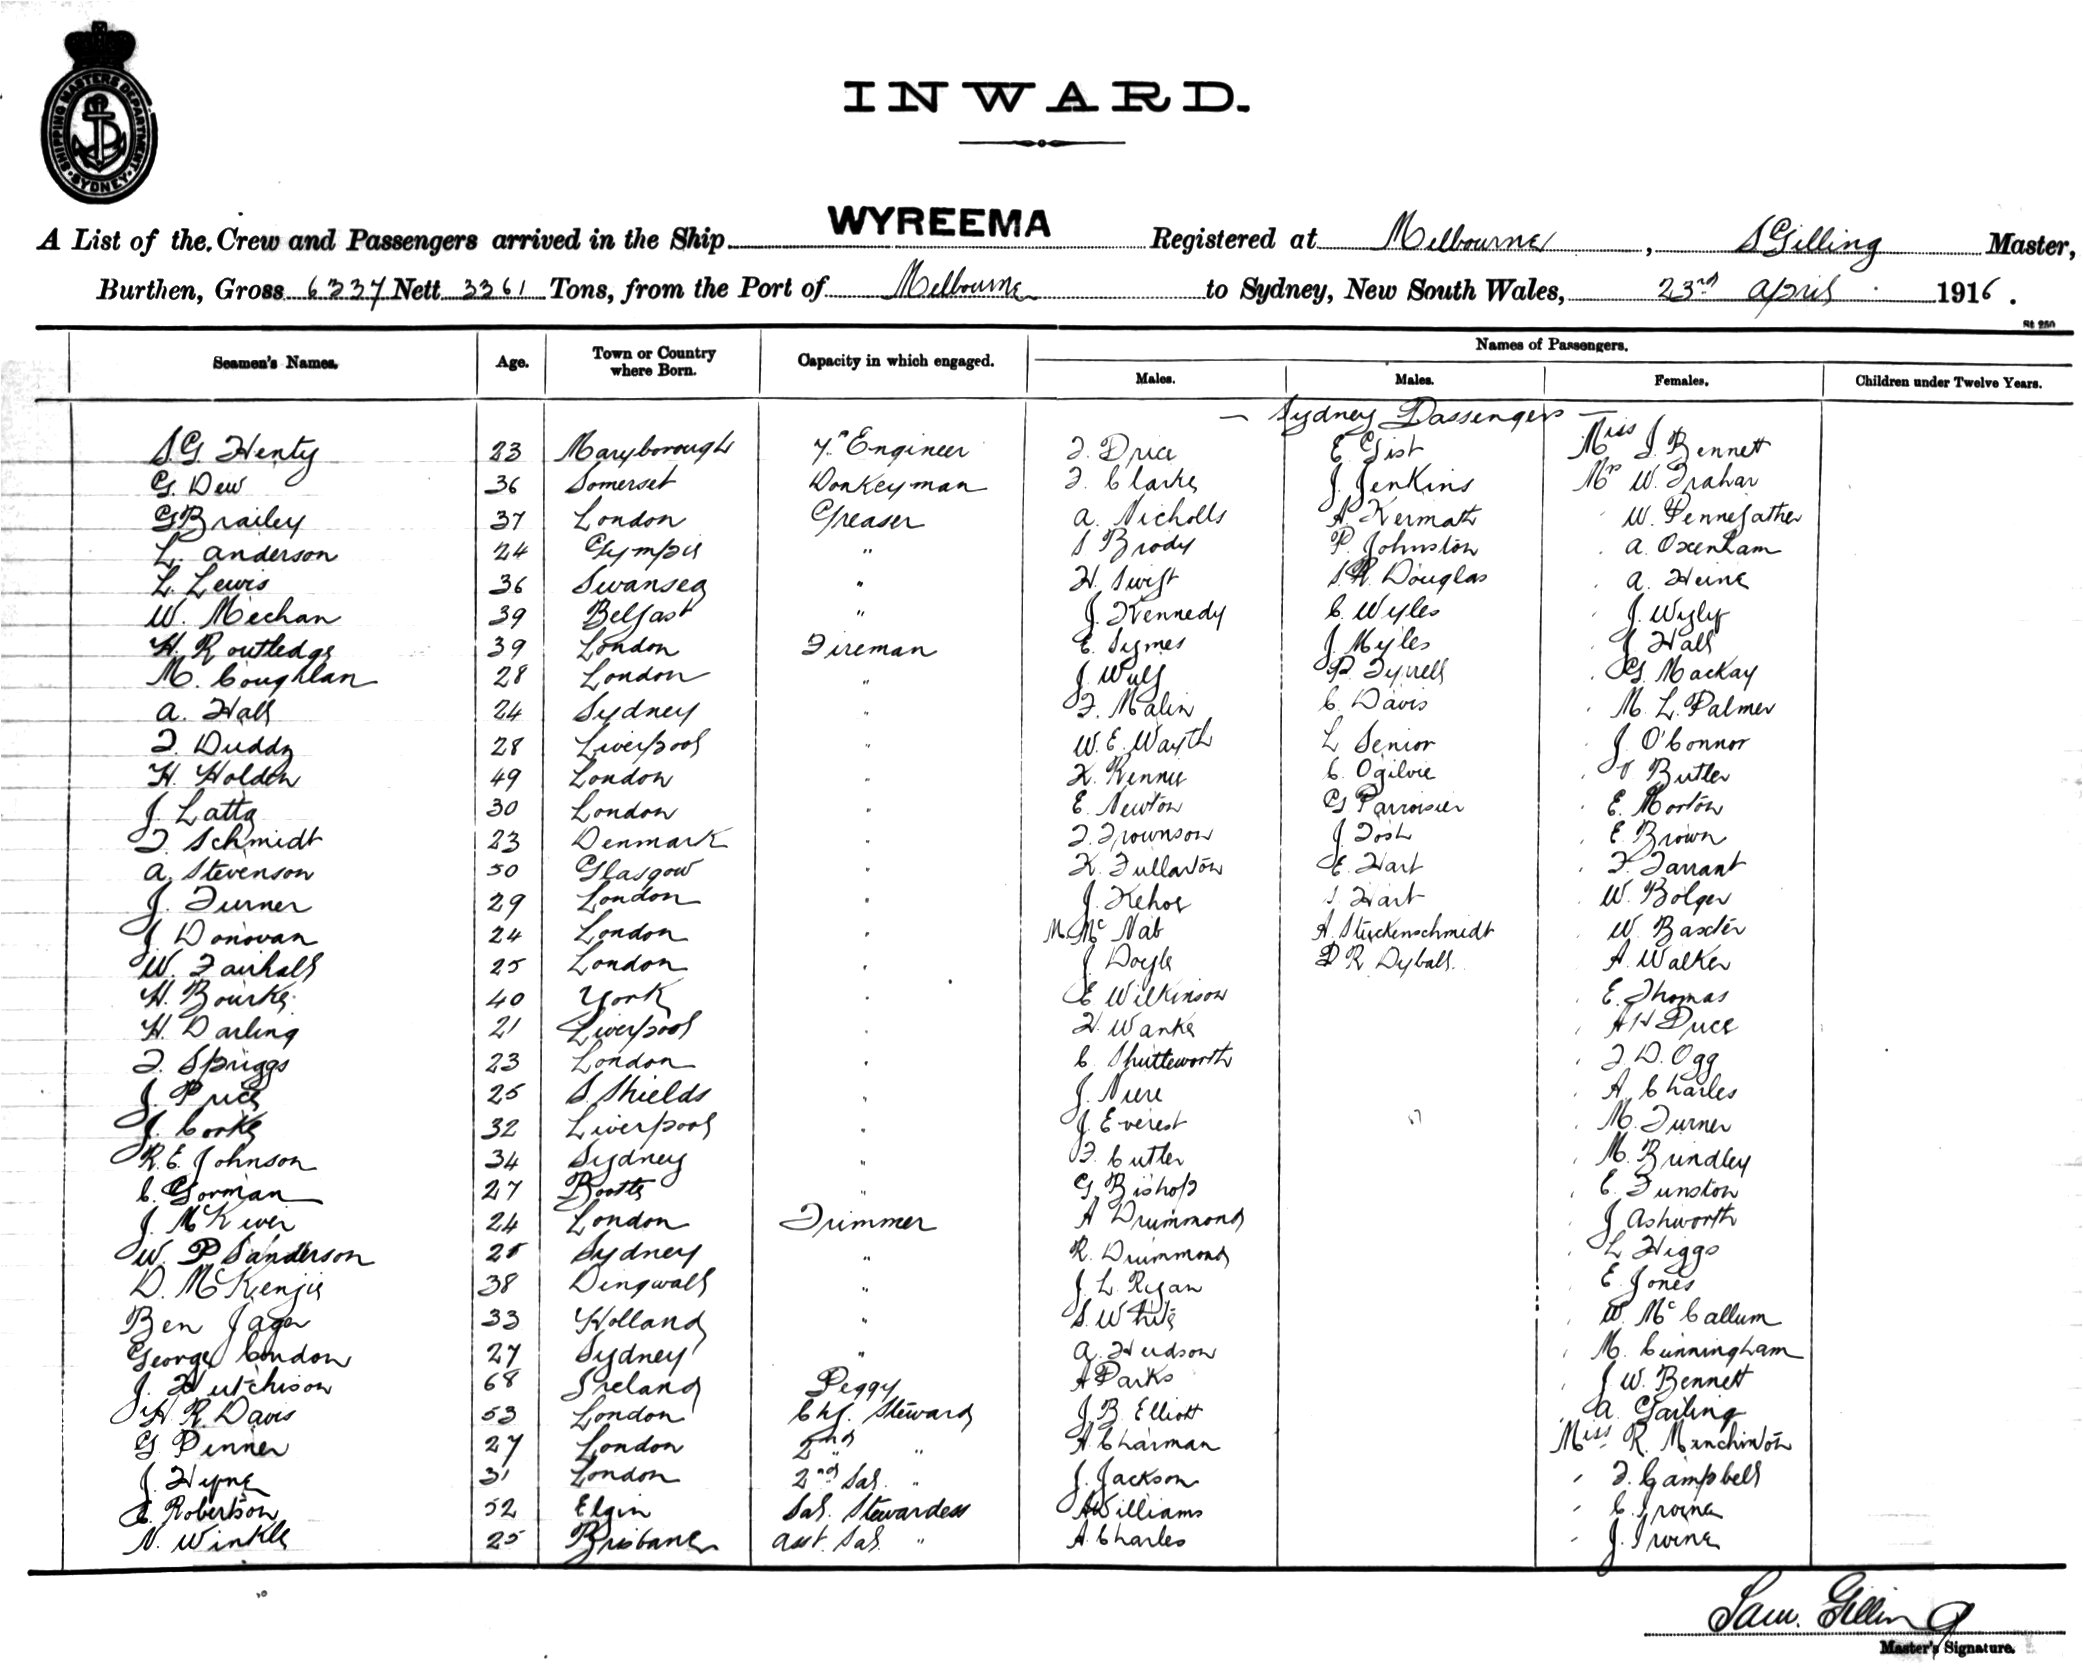 SHIPPING MASTERS DEPARTMENT SYDNEY
INWARD.
A List of the Crew and Passengers arrived in the Ship WYREEMA Registered at Melbourne, S Gilling Master,
Burthen, Gross 6337 Nett 3361 Tons, from the Port of Melbourne to Sydney, New South Wales, 23rd April 1916.
St 250
Seamen's Names. Age. Town or Country where Born. Capacity in which engaged. Names of Passengers.
Males. Males. Females. Children under Twelve Years.
— Sydney Passengers —
S.G Henty 23 Maryborough 7th Engineer F. Price E Gist Miss J. Bennett
G. Dew 36 Somerset Donkeyman F. Clarke J. Jenkins Mrs W. Trahar
G Brailey 37 London Greaser A. Nicholls A. Kermath " W. Pennefather
L. Anderson 24 Gympie " S Brody P. Johnston " A. Oxenham
L. Lewis 36 Swansea " H. Swift S.R. Douglas " A. Heine
W. Mechan 39 Belfast " J. Kennedy C Wyles " J. Wyly
H. Routledge 39 London Fireman E. Symes J Myles " J Hall
M. Coughlan 28 London " J. Wulf P Tyrrell " G. Mackay
A. Hall 24 Sydney " F. Malin C. Davis " M. L. Palmer
F. Duddy 28 Liverpool " W. E. Wayth L Senior " J. O'Connor
H. Holden 49 London " K. Rennie C. Ogilvie " Butler
J. Latta 30 London " E. Newton G Parroisier " E. Morton
F. Schmidt 23 Denmark " F. Frownson J Tosh " E. Brown
A. Stevenson 50 Glasgow " K. Fullarton E. Hart " F. Tarrant
J. Turner 29 London " J. Kehoe S. Hart " W. Bolger
J. Donovan 24 London " M. McNab A. Stuckenschmidt " W. Baxter
W. Fairhall 25 London " J Doyle D R Dyball. " A. Walker
H. Bourke 40 York " E Wilkinson " E. Thomas
H. Darling 21 Liverpool " H. Wanke " A H Duce
F. Spriggs 23 London " C. Shuttleworth " F D. Ogg
J. Price 25 S. Shields " J. Niere " A Charles
J. Corke 32 Liverpool " J. Everest " M. Turner
R. E. Johnson 34 Sydney " F. Cutler " M. Brindley
C. Gorman 27 Bootle " G Bishop " E. Funston
J. McKiver 24 London Trimmer A Drummond " J Ashworth
W. P Sanderson 25 Sydney " R. Drummond " L Higgs
D. McKenzie 38 Dingwall " J. L. Ryan " E. Jones
Ben Jager 33 Holland " S. White " W. McCallum
George Condon 27 Sydney " A. Hudson " M. Cunningham
J. Hutchison 68 Ireland Peggy A Parks " J W. Bennett
H R. Davis 53 London Chf. Steward J. B. Elliott " A. Gailing
G Pinner 27 London 2nd " A. Charman Miss R. Minchinton
J. Hyne 31 London 2nd Sal. " J. Jackson " F. Campbell
E. Robertson 52 Elgin Sal. Stewardess A Williams " C. Irvine
N. Winkle 25 Brisbane asst. Sal. " A. Charles " J. Irvine
Sam. Gilling
Master's Signature.